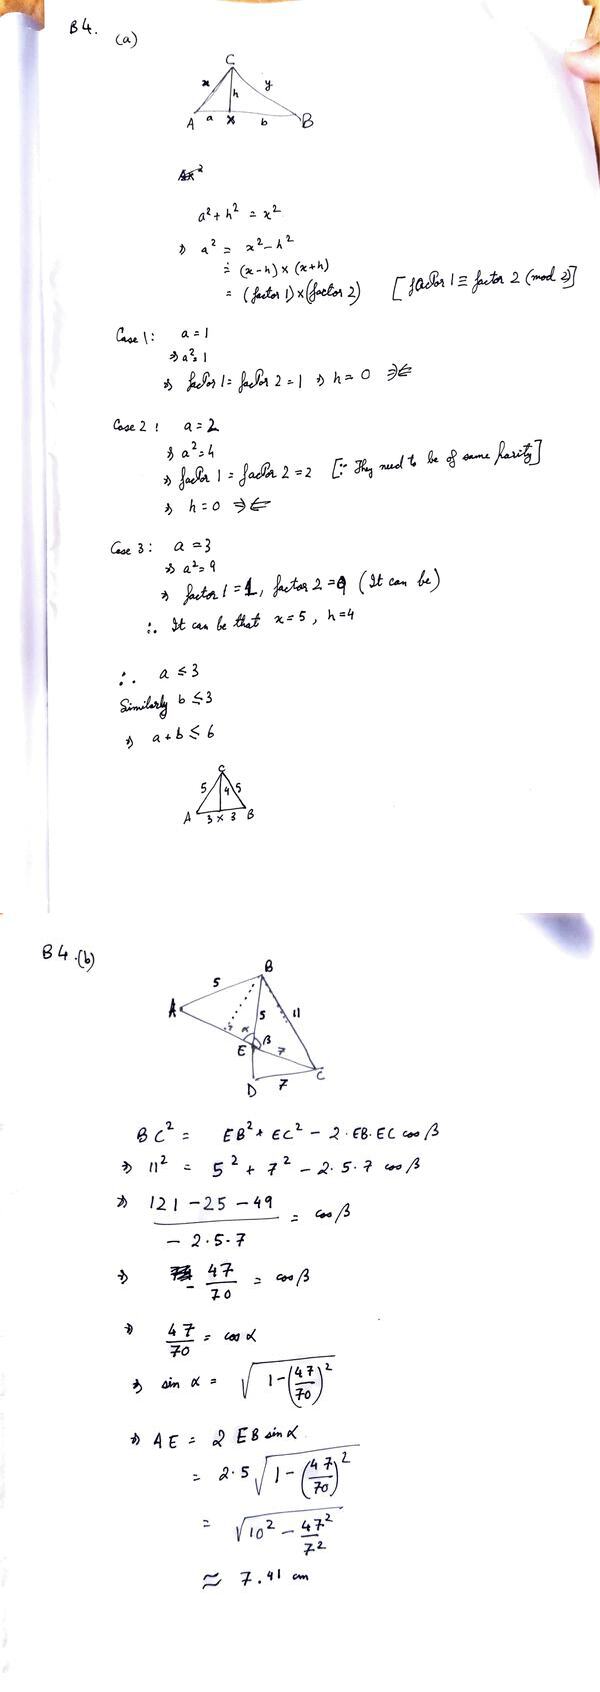 B4.
(a)
C
x h y
A a X b B
a² + h² = x²
⇒ a² = x² - h²
= (x-h) × (x+h)
= (factor 1) × (factor 2) [factor 1 ≡ factor 2 (mod 2)]
Case 1: a = 1
⇒ a² = 1
⇒ factor 1 = factor 2 = 1 ⇒ h = 0 ⇒⇐
Case 2: a = 2
⇒ a² = 4
⇒ factor 1 = factor 2 = 2 [∵ They need to be of same parity]
⇒ h = 0 ⇒⇐
Case 3: a = 3
⇒ a² = 9
⇒ factor 1 = 1, factor 2 = 9 (It can be)
∴ It can be that x = 5, h = 4
∴ a ≤ 3
Similarly b ≤ 3
⇒ a + b ≤ 6
C
5 4 5
A 3 X 3 B
B4.(b)
B
5
A 5 11
α
E β 7
C
D 7
BC² = EB² + EC² - 2·EB·EC cos β
⇒ 11² = 5² + 7² - 2·5·7 cos β
⇒ 121 - 25 - 49 / - 2·5·7 = cos β
⇒ - 47/70 = cos β
⇒ 47/70 = cos α
⇒ sin α = √(1 - (47/70)²)
⇒ AE = 2 EB sin α
= 2·5 √(1 - (47/70)²)
= √(10² - 47²/7²)
≈ 7.41 cm